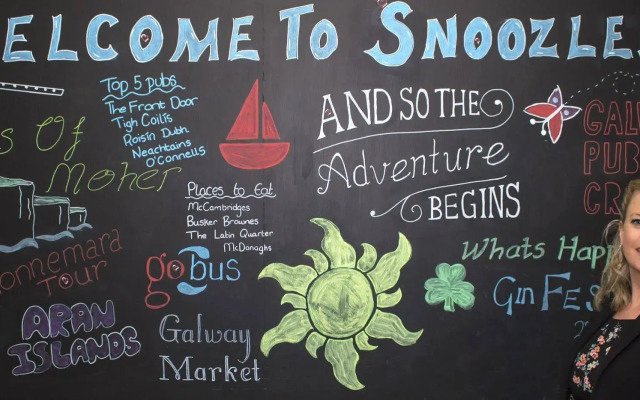 ELCOME TO SNOOZLE
Top 5 pubs
The Front Door
Tigh Coilis
Roisin Dubh
Neachtains
O'Connells
s Of
Moher
Places to Eat
McCambridges
Busker Brownes
The Latin Quarter
McDonaghs
AND SO THE
Adventure
BEGINS
GAL
PUB
CR
onnemara
Tour
goBus
ARAN
ISLANDS
Galway
Market
Whats Happ
Gin Fes